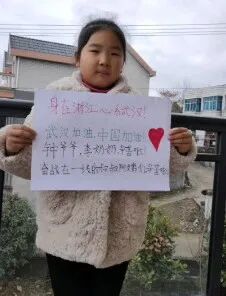 身在浙江心系武汉!
武汉加油,中国加油!
钟爷爷,李奶奶,辛苦啦!
奋战在一线的叔叔阿姨们辛苦啦!